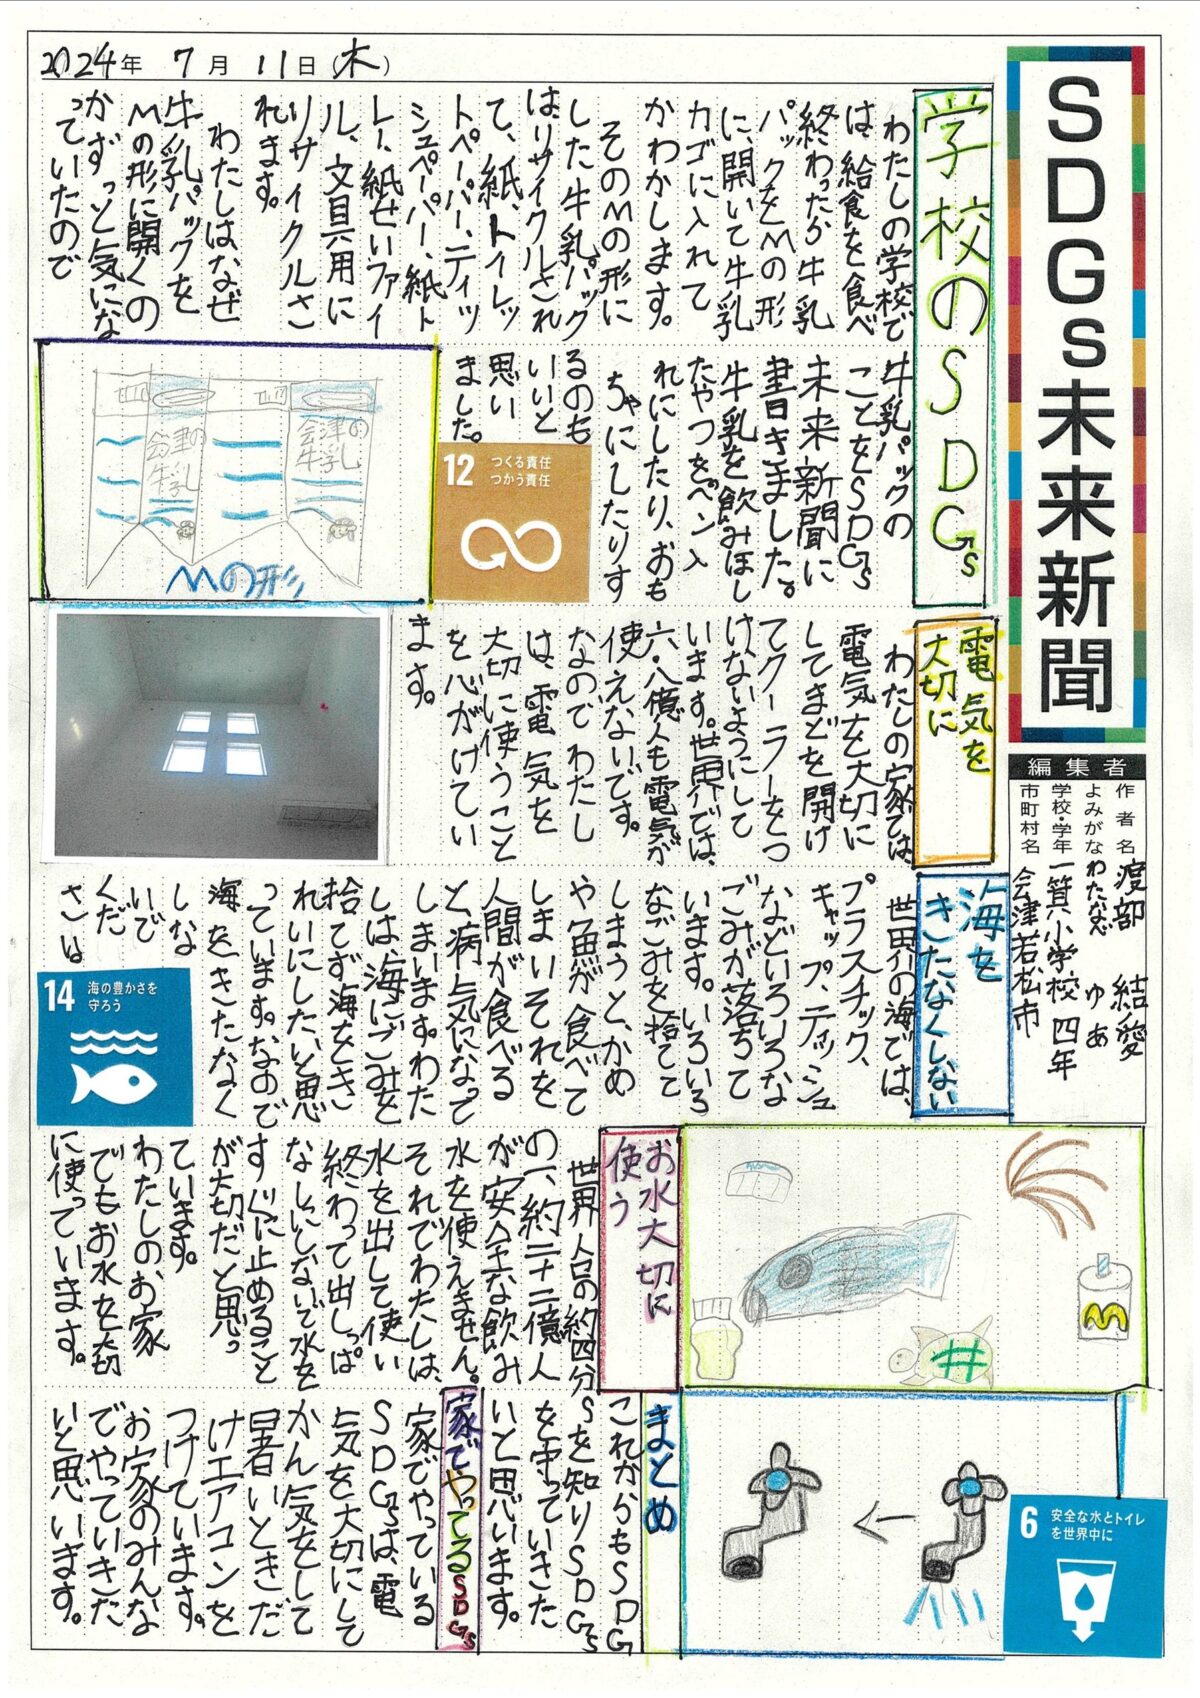 2024年 7月 11日(木)
SDGs未来新聞
編集者
作者名 渡部 結愛
よみがな わたなべ ゆあ
学校・学年 一箕小学校 四年
市町村名 会津若松市
学校のSDGs
わたしの学校で
は、給食を食べ
終わったら牛乳
パックをMの形
に、開いて牛乳
カゴに入れて
かわかします。
そのMの形に
した牛乳パック
は、リサイクルされ
て、紙、トイレッ
トペーパー、ティッ
シュペーパー、紙ト
レー、紙せいファイ
ル、文具用に
リサイクルさ
れます。
わたしはなぜ
牛乳パックを
Mの形に開くの
かずっと気にな
っていたので
牛乳パックの
ことをSDGs
未来新聞に
書きました。
牛乳を飲みほし
たやつをペン入
れにしたり、おも
ちゃにしたりす
るのも
いいと
思い
ました。
12 つくる責任
つかう責任
会津の
牛乳
会津の
牛乳
Mの形
電気を
大切に
わたしの家では
電気を大切に
してまどを開け
てクーラーをつ
けないようにして
います。世界では、
六・八億人も電気が
使えないです。
なのでわたし
は、電気を
大切に使うこと
を心がけてい
ます。
海を
きたなくしない
世界の海では、
プラスチック、
キャップ、ティッシュ
などいろいろな
ごみが落ちて
います。いろいろ
なごみを捨てて
しまうと、かめ
や魚が食べて
しまいそれを
人間が食べる
と、病気になって
しまいます。わた
しは海にごみを
捨てず海をき
れいにしたいと思
っています。なので
海をきたなく
しな
いで
くだ
さい
14 海の豊かさを
守ろう
お水大切に
使う
世界人口の約四分
の一、約二十二億人
が安全な飲み
水を使えません。
それでわたしは、
水を出して使い
終わって出しっぱ
なしにしないで水を
すぐに止めること
が大切だと思っ
ています。
わたしのお家
でもお水を大切
に使っています。
6 安全な水とトイレ
を世界中に
まとめ
これからもSDG
sを知りSDGs
を守っていきた
いと思います。
家でやってるSDGs
家でやっている
SDGsは、電
気を大切にして
かん気をして
暑いときだ
けエアコンを
つけています。
お家のみんな
でやっていきた
いと思います。